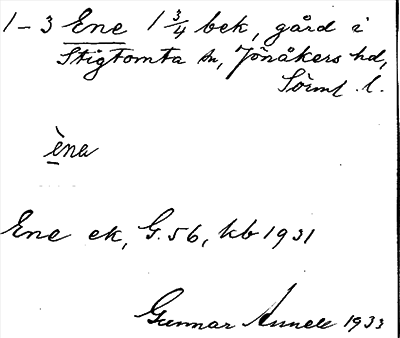 1-3 Ene 1 3/4 bek, gård i
Stigtomta sn, Jönåkers hd,
Sörml. l.
èna
Ene ek, G. 56, kb 1931
Gunnar Annell 1933